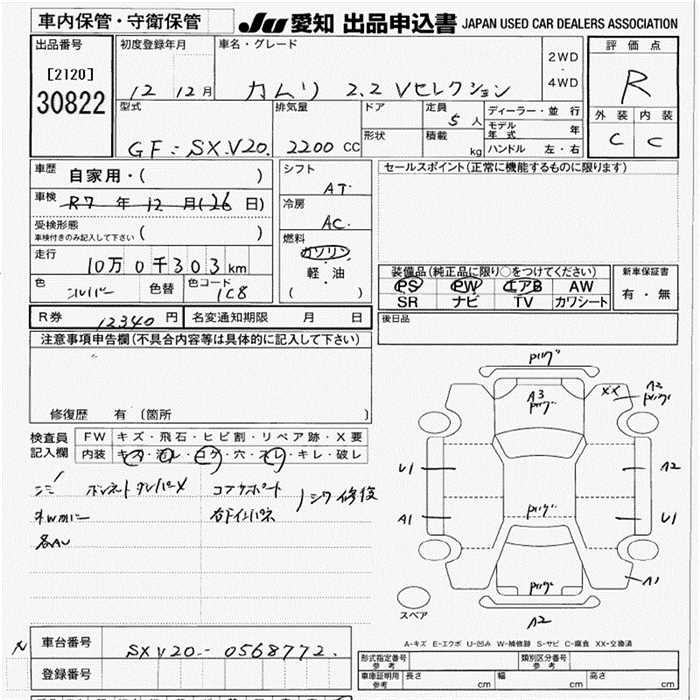 車内保管・守衛保管
JU 愛知 出品申込書 JAPAN USED CAR DEALERS ASSOCIATION
出品番号
[2120]
30822
初度登録年月
12 12月
車名・グレード
カムリ 2.2 Vセレクション
2WD
・
4WD
評価点
R
外装 内装
C C
型式
GF-SXV20
排気量
2200 CC
ドア
形状
定員
5人
積載
kg
ディーラー・並行
モデル年式 年
ハンドル 左・右
車歴
自家用・( )
車検
R7年12月(26日)
受検形態
車検付きのみ記入して下さい ( )
走行
10万0千303km
色
シルバー
色替
色コード
1C8
シフト
AT
冷房
AC
燃料
ガソリン
・
軽・油
( )
セールスポイント(正常に機能するものに限ります)
装備品(純正品に限り○をつけてください)
PS PW エアB AW
SR ナビ TV カワシート
新車保証書
有・無
R券 12340円
名変通知期限 月 日
後日品
注意事項申告欄(不具合内容等は具体的に記入して下さい)
修復歴 有(箇所 )
検査員記入欄
FW キズ・飛石・ヒビ割・リペア跡・X要
内装 キズ・汚レ・コゲ・穴・スレ・キレ・破レ
ボンネット コアサポート
シワ修復
各AU
キリグ
A3
XX
A2
U1
A2
A1
U1
A1
A2
スペア
A-キズ E-エクボ U-凹み W-補修跡 S-サビ C-腐食 XX-交換済
車台番号
SXV20-0568772
登録番号
型式指定番号
参考
類別区分番号
参考
車庫証明用
参考
長さ cm
幅 cm
高さ cm